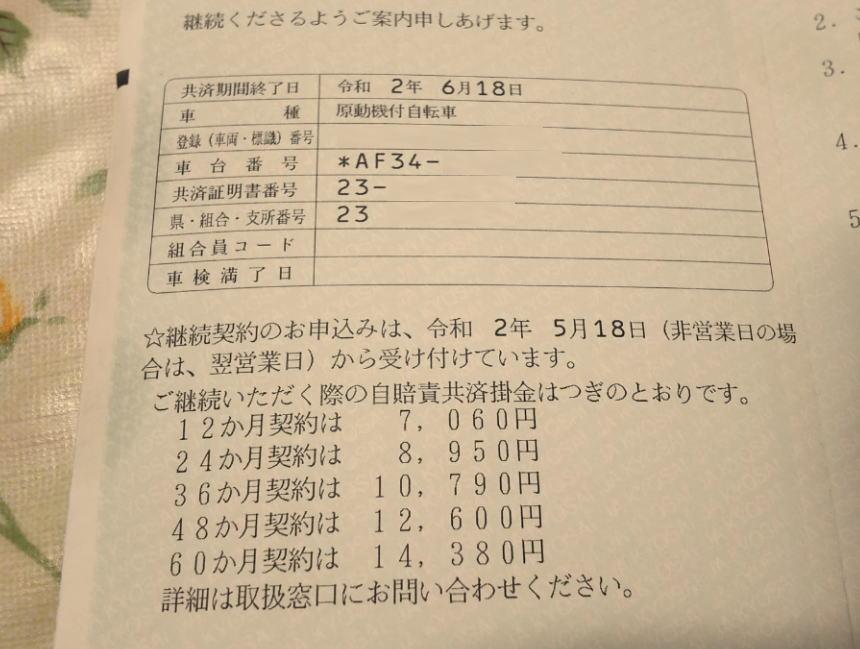 継続くださるようご案内申しあげます。
共済期間終了日 令和 2年 6月18日
車種 原動機付自転車
登録（車両・標識）番号
車台番号 *AF34-
共済証明書番号 23-
県・組合・支所番号 23
組合員コード
車検満了日
☆継続契約のお申込みは、令和 2年 5月18日（非営業日の場
合は、翌営業日）から受け付けています。
ご継続いただく際の自賠責共済掛金はつぎのとおりです。
12か月契約は 7，060円
24か月契約は 8，950円
36か月契約は 10，790円
48か月契約は 12，600円
60か月契約は 14，380円
詳細は取扱窓口にお問い合わせください。
2.
3.
4.
5